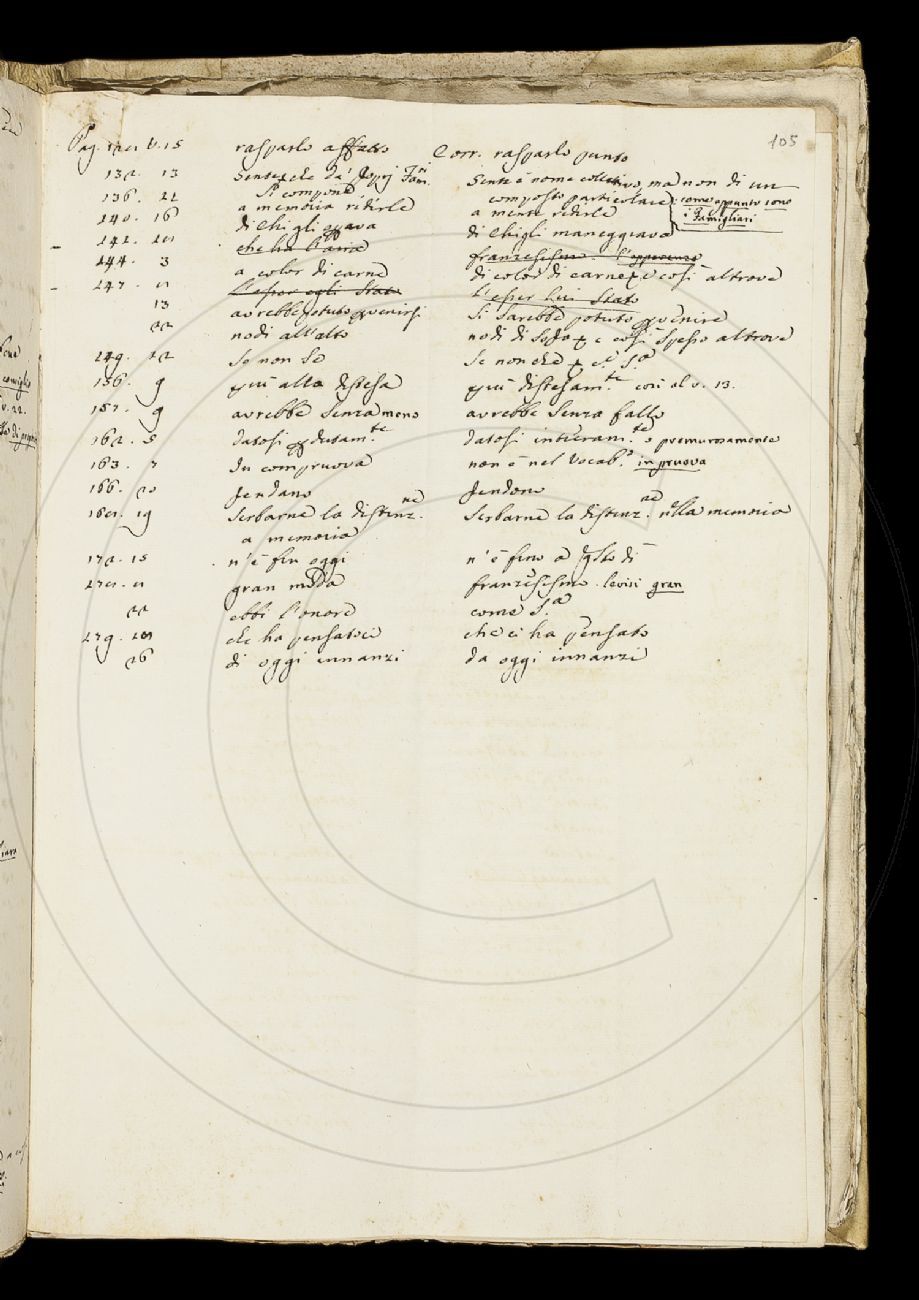 105
Pag. v. 15 rasparlo affatto Corr. rasparlo punto
132. 13 gente che da' proprj Fam. gente è nome collettivo, ma non di un
si compone composto particolare come appunto sono
136. 22 a memoria ridirle a mente ridirle i Famigliari
140. 16 di chi gli di chi gli maneggiava
che ha l'aria franzesismo. l'apparenza
144. 3 a color di carne di color di carne, e così altrove
147. l'esser egli stato l'esser lui stato
13 avrebbe potuto pervenirsi si sarebbe potuto pervenire
22 nodi all'alto nodi di sopra, e così spesso altrove
149. 22 se non se se non che, e S.a
156. 9 più alla distesa più distesam.te così al v. 13.
157. 9 avrebbe senza meno avrebbe senza fallo
162. 5 datosi perdutam.te datosi intieram.te o premurosamente
163. 7 in compruova non è nel Vocab.o in pruova
166. 20 pendano pendono
19 serbarne la distinz.ne serbarne la distinz.ne nella memoria
a memoria
172. 15 n'è fin oggi n'è fino a questo dì
gran moda franzesismo. levisi gran
22 ebbi l'onore come S.a
179. che ha pensatoci che ci ha pensato
26 di oggi innanzi da oggi innanzi